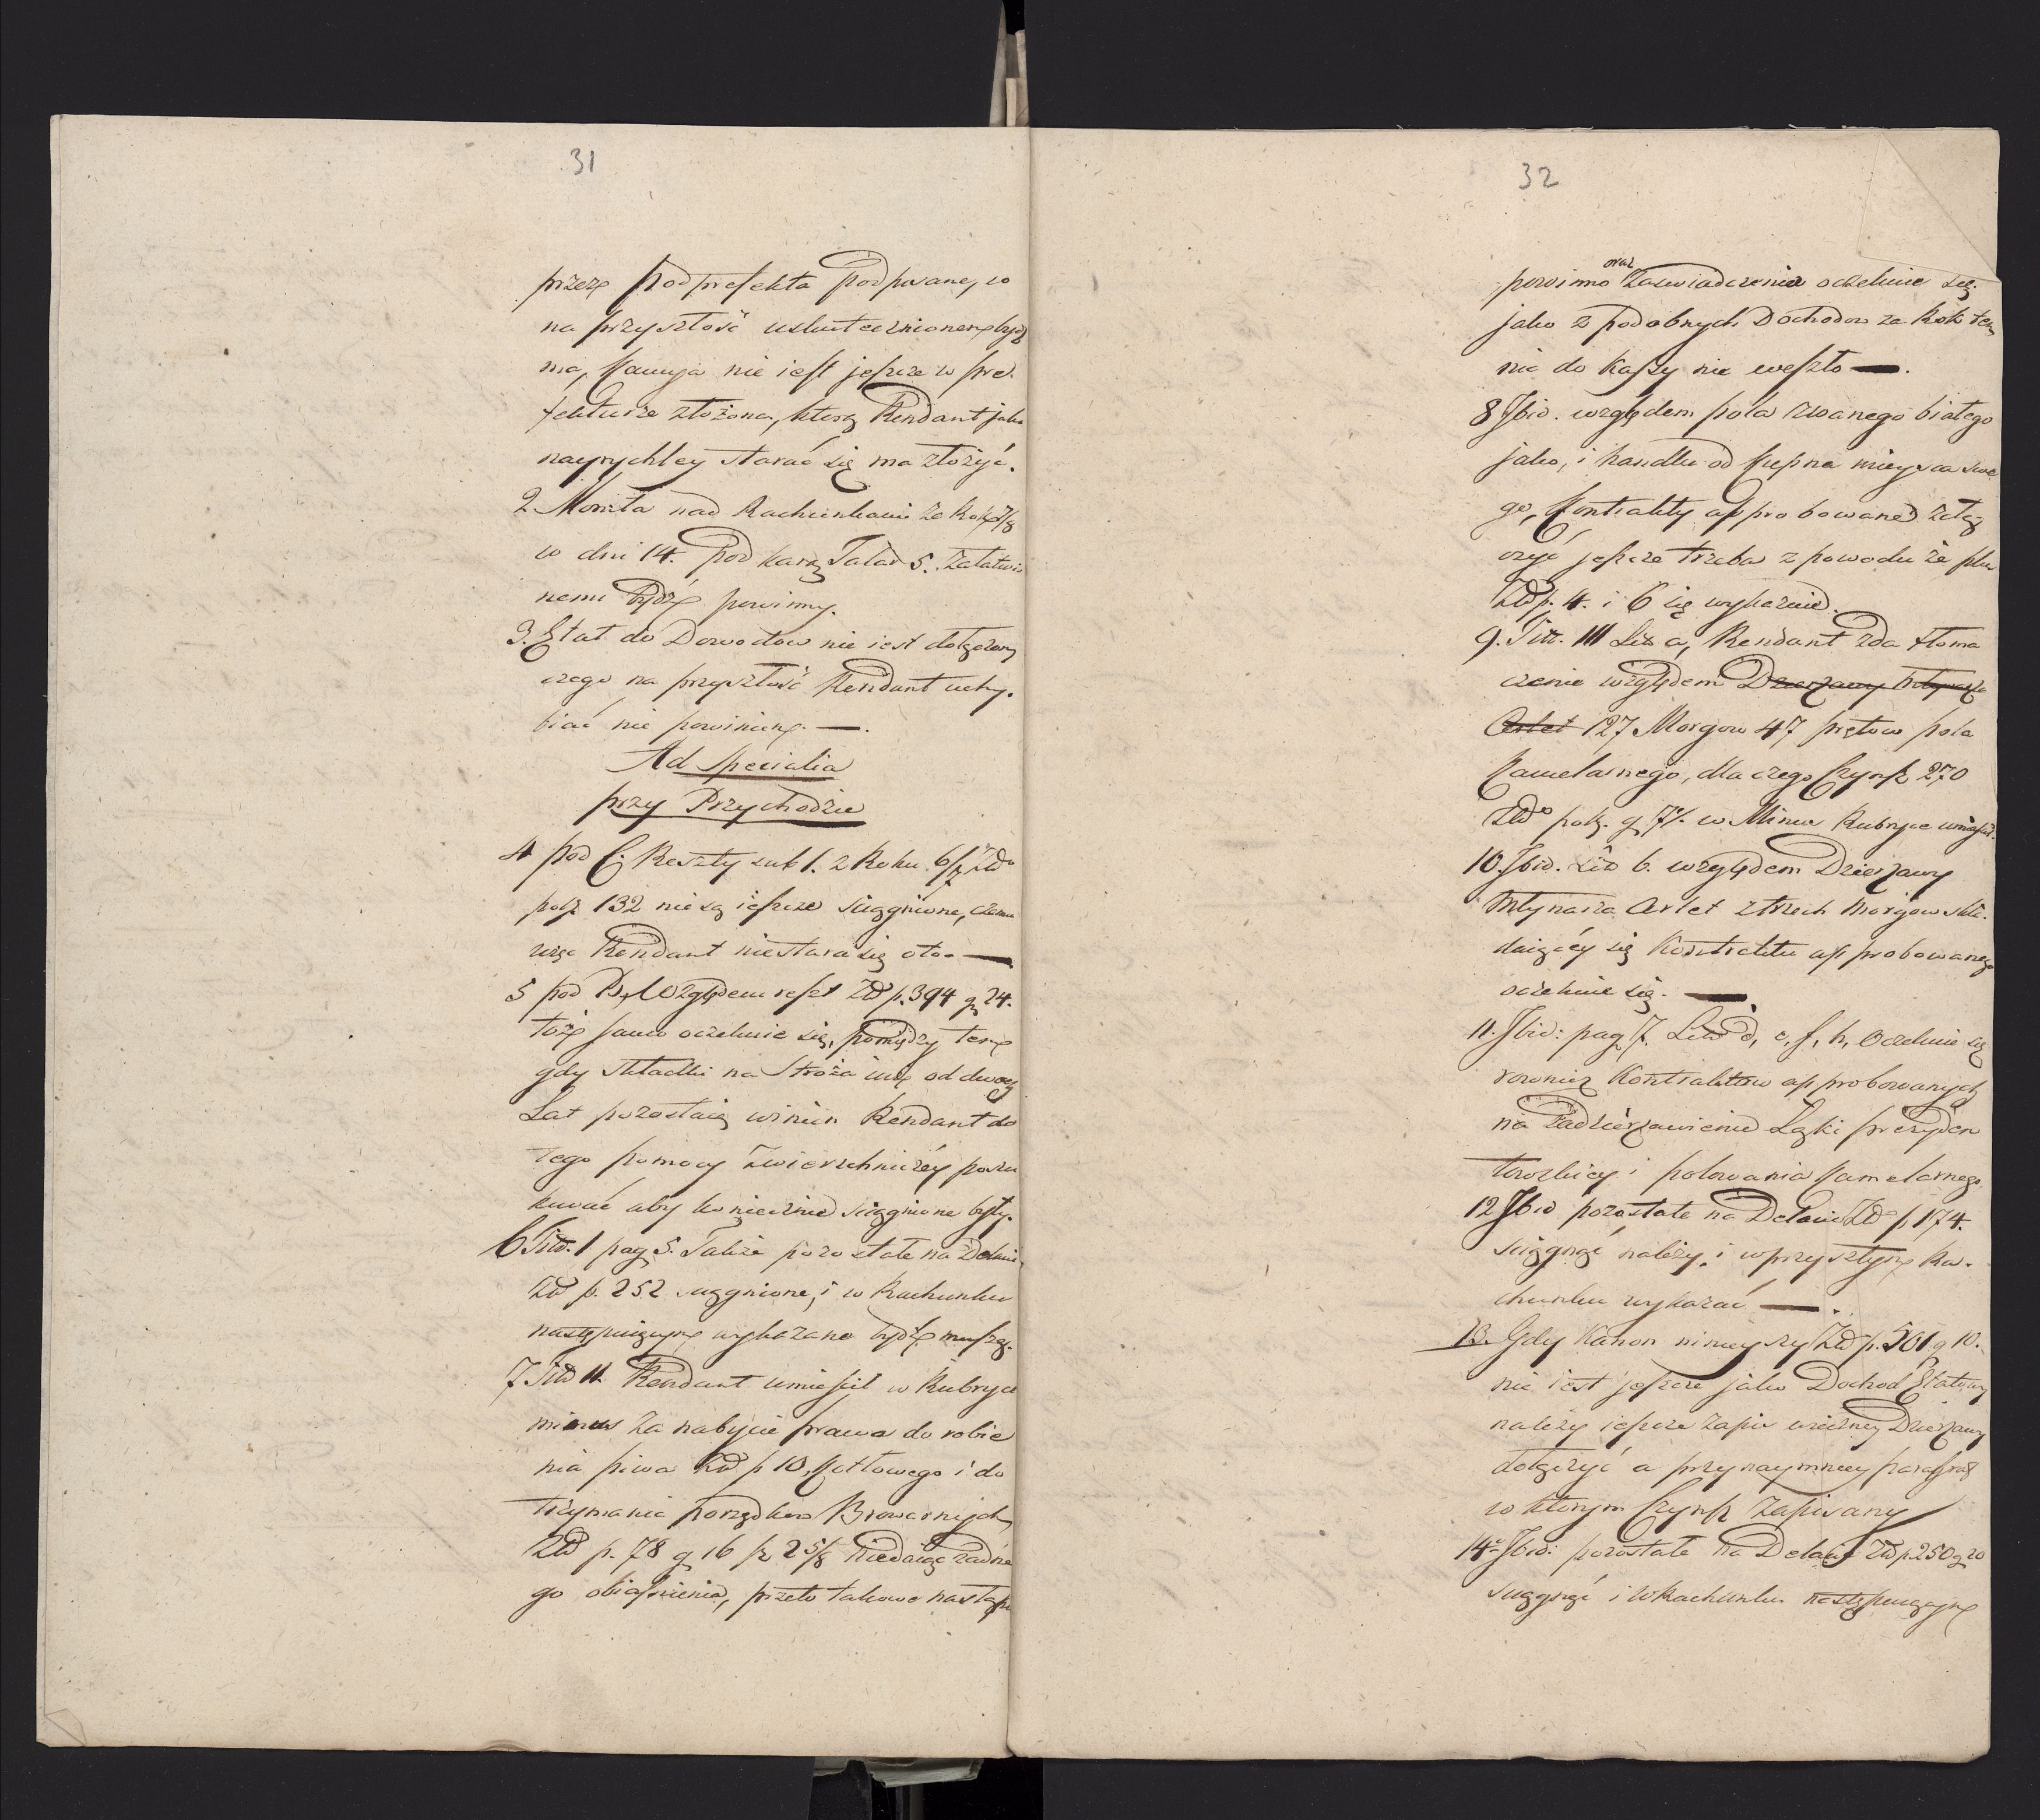 31
przez Podprefekta podpisane, co
na przyszłość uskutecznionem bydź
ma, Kaucya nie iest jeszcze w Pre-
fekturze złożona, którą Rendant jako
nayrychley starać się ma złożyć.
2 Monita nad Rachunkami ze Roku 7/8
w dni 14. pod karą Talar 5. załatwio
nemi bydź powinny.
3. Etat do Dowodow nie iest dołączony
czego na przyszłość Rendant uchy-
biać nie powinien. —
Ad Specialia
przy Przychodzie
4 pod C. Reszty sub 1. z Roku 6/7 Zło
pols 132 nie są ieszcze sciągnione, czemu
więc Rendant niestara się oto. —
5 pod B, względem reszt Zł p. 394 g 24.
toż samo oczekuie się, pomiędzy tem
gdy składki na Stroża iuż od dwoch
Lat pozostaią winien Rendant do
tego pomocy Zwierzchniczéy poszu
kiwać aby koniecznie sciągnione były.
6 Titt. 1 pag 5. Także pozostałe na Delacie
Zł p. 252 sciągnione, i w Rachunku
następuiącym wykazane bydź muszą.
7 Titt II. Rendant umieścił w Rubryce
minus za nabycie prawa do robie
nia piwa Zł p 10, Kotłowego i do
trzymania porządkow Browarnych
Zł p. 78 g 16 sz 2 5/8 niedaiąc żadne
go obiaśnienia, przeto takowe nastąpić
32
oraz
powinno Zaswiadczenia oczekuie się
jako z podobnych Dochodow za Rok ten
nic do Kassy nie weszło —.
8 Ibid. względem pola zwanego białego
jako, i handlu od Kupna mieysca swe
go, Kontrakty approbowane załą
czyć jeszcze trzeba z powodu że plus
Zł p. 4. i 6 się wykazuie.
9. Titt. III Litt a, Rendant zda tłoma
czenie względem Dzierzawy Młynarza
Arlet 127 Morgow 47 prętow pola
Kamelarnego, dla czego Czynsz 270
Zło polz. g 7 1/. w Minus Rubryce umieścił.
10. Ibid. Litt b. względem Dzierzawy
Młynarza Arlet z trzech Morgow skła-
daiącéy się Kontraktu approbowanego
oczekuie się. —
11. Ibid: pag 7. Litt d, e, f, h, Oczekuie się
rownież Kontraktow approbowanych
na zadzierzawienie Łąki prezyden
towskiey i polowania Kamelarnego.
12 Ibid pozostałe na Delacie Zł p 174.
sciągnąć należy, i wprzyszłym Ra-
chunku wykazać —.
13. Gdy Kanon ninieyszy Zł p. 501 g 10.
nie iest jeszcze jako Dochod Etatowy
należy ieszcze zapis wieczney Dzierzawy
dołączyć a przynaymniey paragraf
w ktorym Czynsz zapisany
14. Ibid: pozostałe na Delacie Zł p 250 g 20
sciągnąć i w Rachunku następuiącym